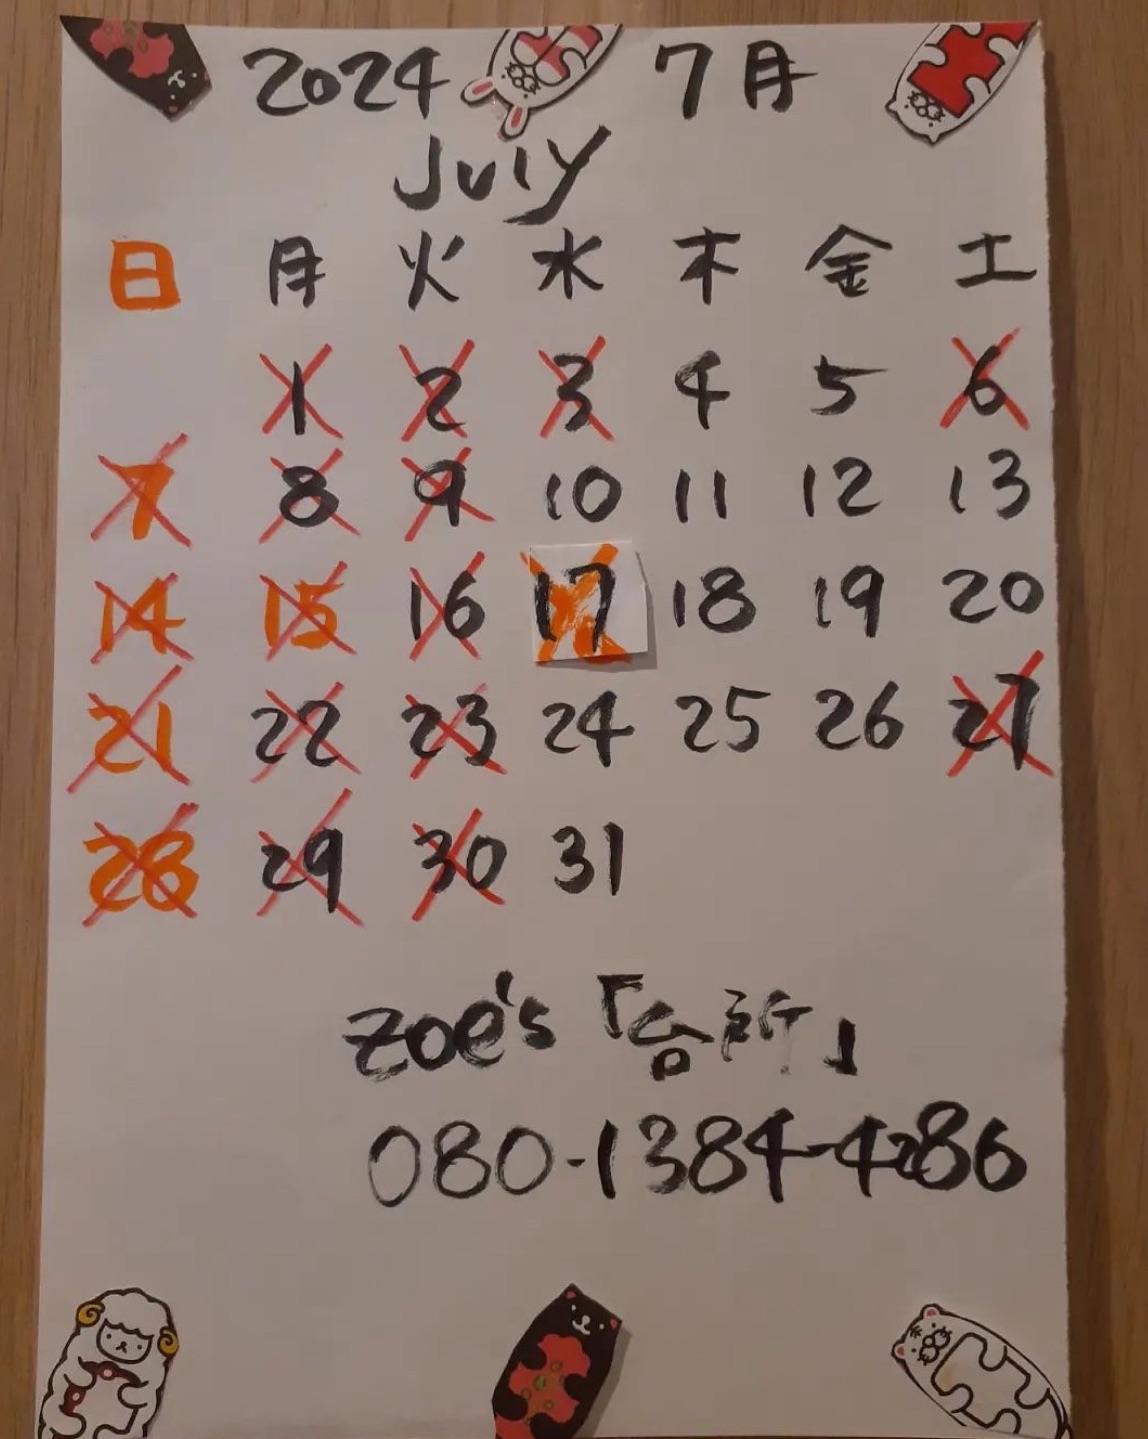 2024 7月
July
日 月 火 水 木 金 土
1 2 3 4 5 6
7 8 9 10 11 12 13
14 15 16 17 18 19 20
21 22 23 24 25 26 27
28 29 30 31
zoe's「台所」
080-1384-4286